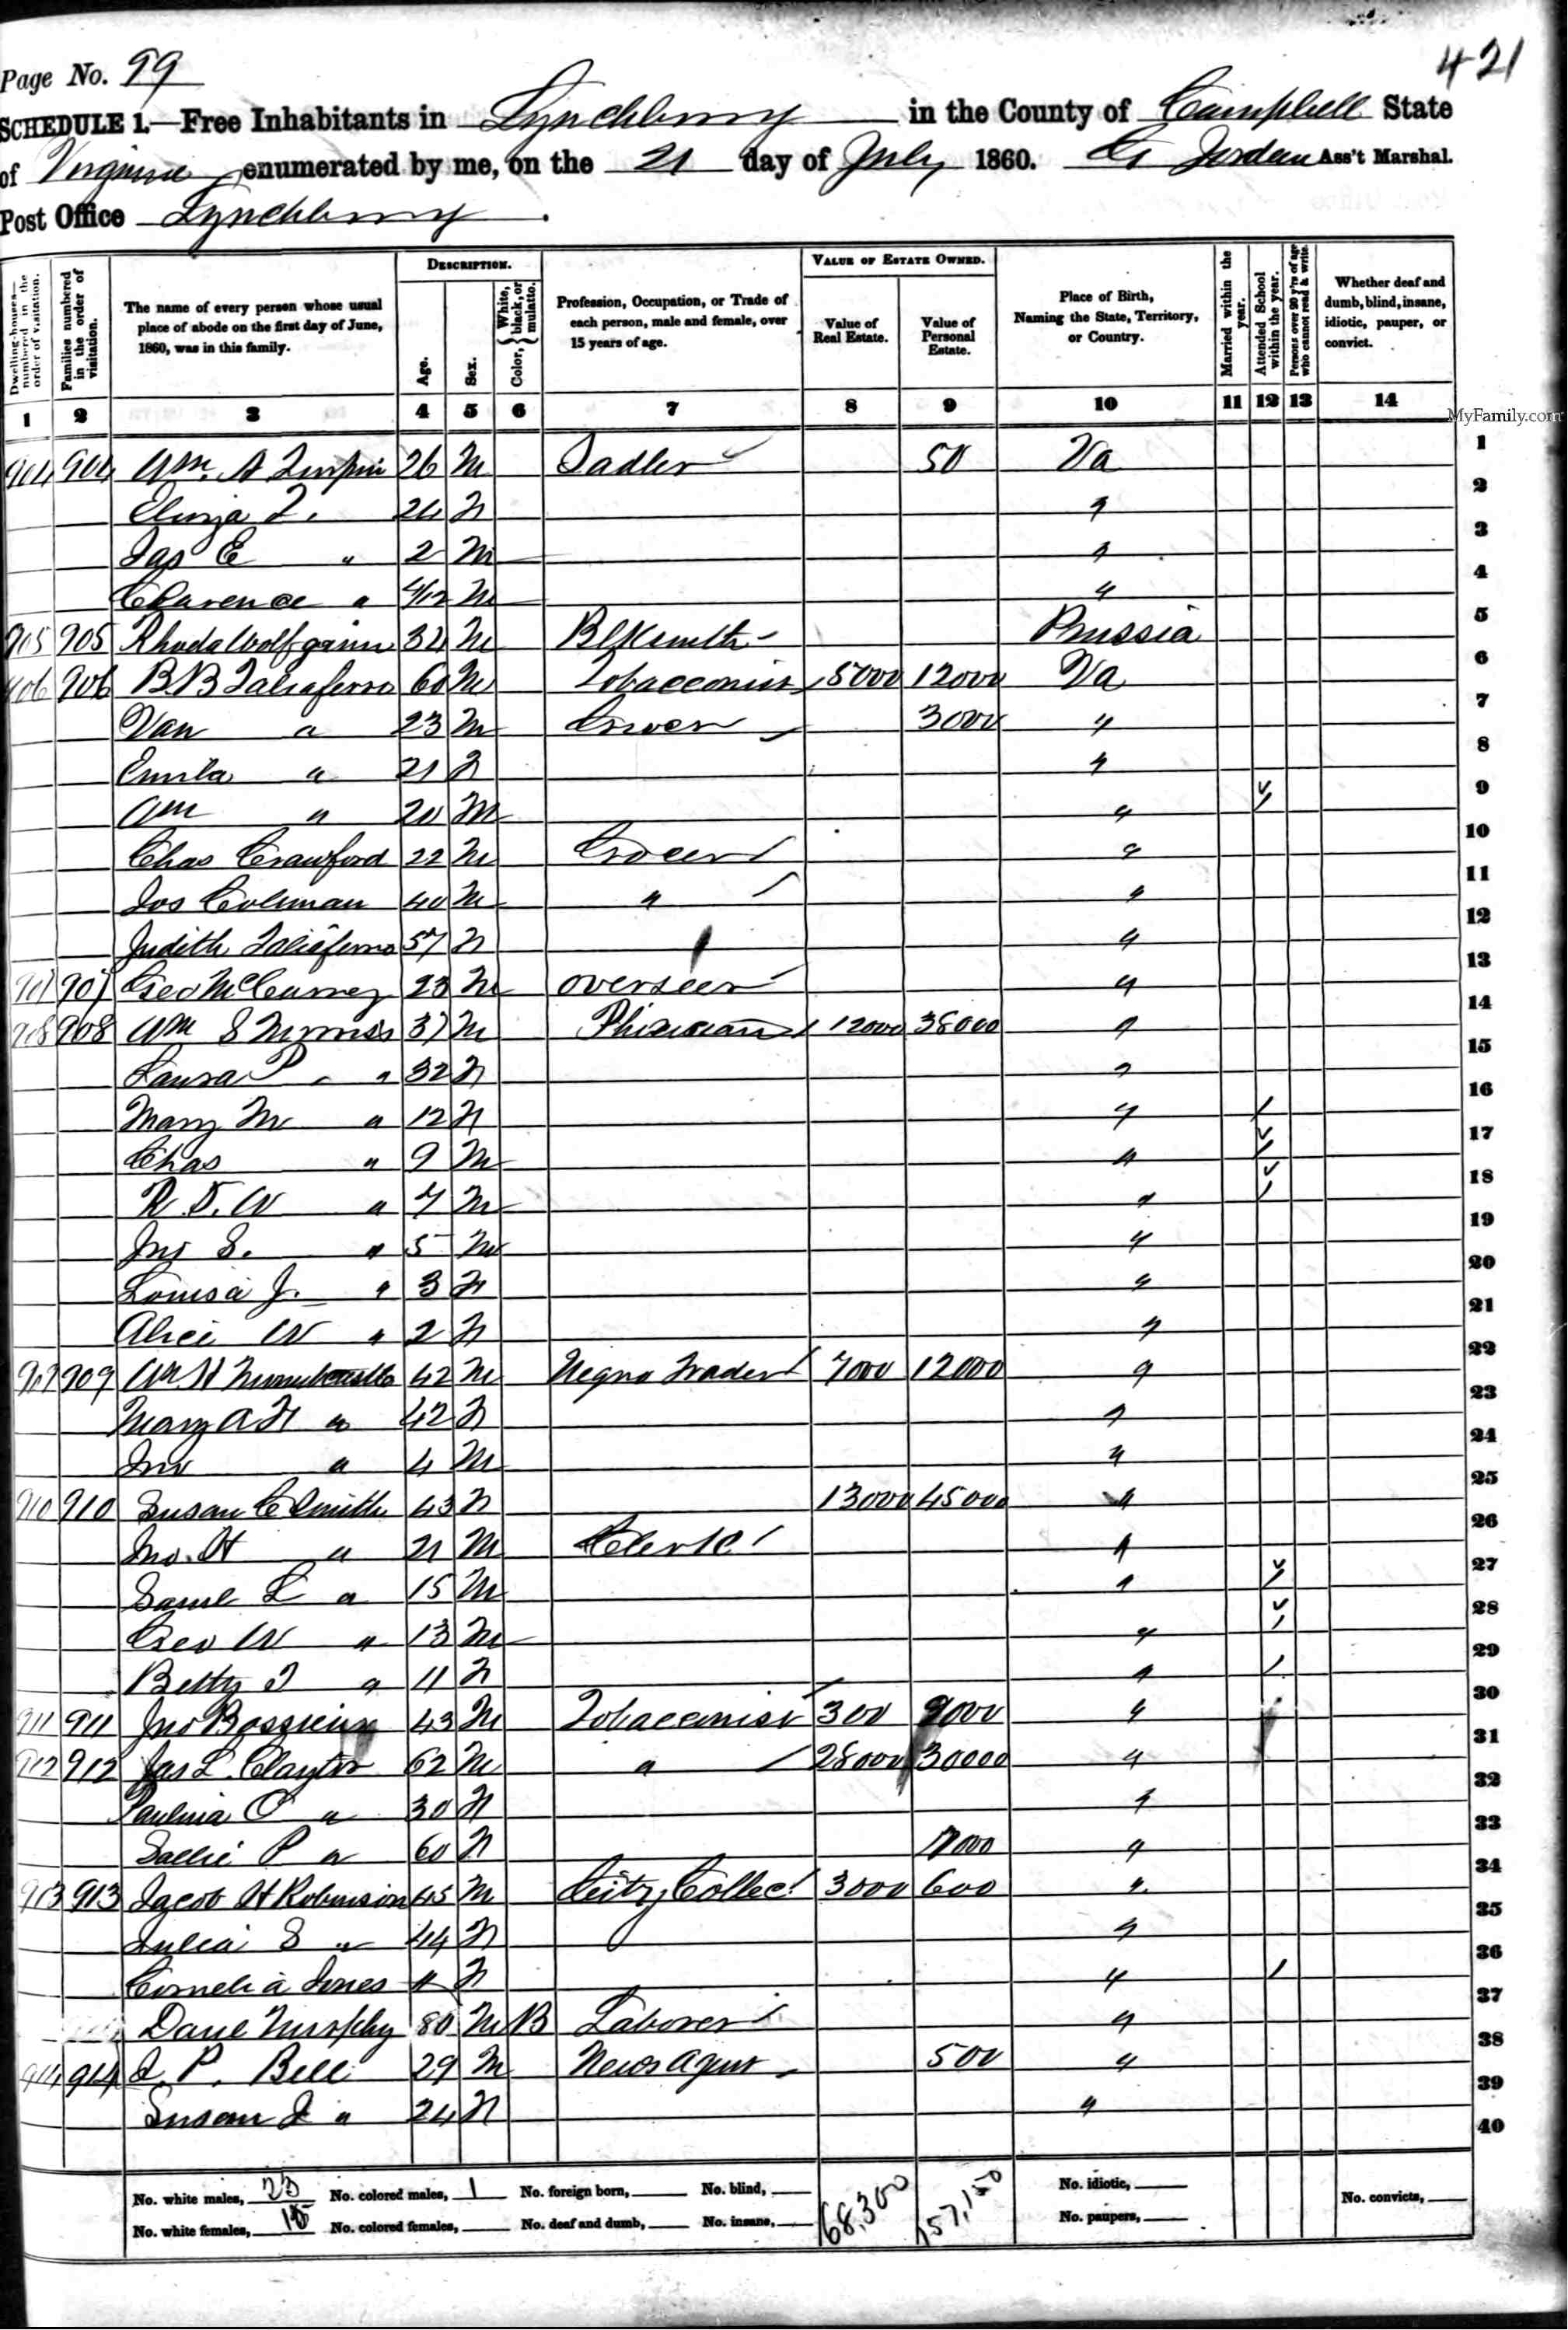 Page No. 99
421
SCHEDULE 1.—Free Inhabitants in Lynchburg in the County of Campbell State
of Virginia enumerated by me, on the 21 day of July 1860. G Jordan Ass't Marshal.
Post Office Lynchburg.
Dwelling-houses—numbered in the order of visitation.
Families numbered in the order of visitation.
The name of every person whose usual place of abode on the first day of June, 1860, was in this family.
DESCRIPTION.
Age.
Sex.
Color, { White, black, or mulatto.
Profession, Occupation, or Trade of each person, male and female, over 15 years of age.
VALUE OF ESTATE OWNED.
Value of Real Estate.
Value of Personal Estate.
Place of Birth, Naming the State, Territory, or Country.
Married within the year.
Attended School within the year.
Persons over 20 y'rs of age who cannot read & write.
Whether deaf and dumb, blind, insane, idiotic, pauper, or convict.
1 2 3 4 5 6 7 8 9 10 11 12 13 14
MyFamily.com
904 904 Wm. A Turpin 26 M Sadler 50 Va 1
Eliza F. 24 F " 2
Jas E " 2 M " 3
Clarence " 4/12 M " 4
905 905 32 M Blksmith Prussia 5
906 906 B B Taliaferro 60 M Tobacconist 5000 12000 Va 6
Van " 23 M Grocer 3000 " 7
" 21 F " 8
Wm " 20 M " 9
Chas Crawford 22 M Grocer " 10
Jos Coleman 40 M " " 11
Judith Taliaferro 57 F " 12
907 907 Geo 23 M overseer " 13
908 908 Wm S 37 M 12000 38000 " 14
Laura P " 32 F " 15
Mary M " 12 F " 16
Chas " 9 M " 17
R. T. W " 7 M " 18
Jno S. " 5 M " 19
Louisa J. " 3 F " 20
Alice W " 2 F " 21
909 909 Wm H 42 M Negro Trader 7000 12000 " 22
Mary A F " 42 F " 23
Jno " 4 M " 24
910 910 Susan C Smith 43 F 13000 45000 " 25
Jno. H " 21 M Clerk " 26
Saml L " 15 M " 27
Geo W " 13 M " 28
Betty " 11 F " 29
911 911 Jno Bossieux 43 M Tobacconist 300 9000 " 30
912 912 Jas L. Clayton 62 M " 28000 30000 " 31
Paulina C " 30 F " 32
Sallie P " 60 F " 33
913 913 Jacob H Robinson 45 M City Collec. 3000 600 " 34
Julia S " 44 F " 35
Cornelia Jones 11 F " 36
Murphy 80 M B Laborer " 37
914 914 J. P. Bell 29 M News Agent 500 " 38
Susan J " 24 F " 39
40
No. white males, 23 No. colored males, 1 No. foreign born, No. blind, 68,300 157,150 No. idiotic, No. convicts,
No. white females, No. colored females, No. deaf and dumb, No. insane, No. paupers,